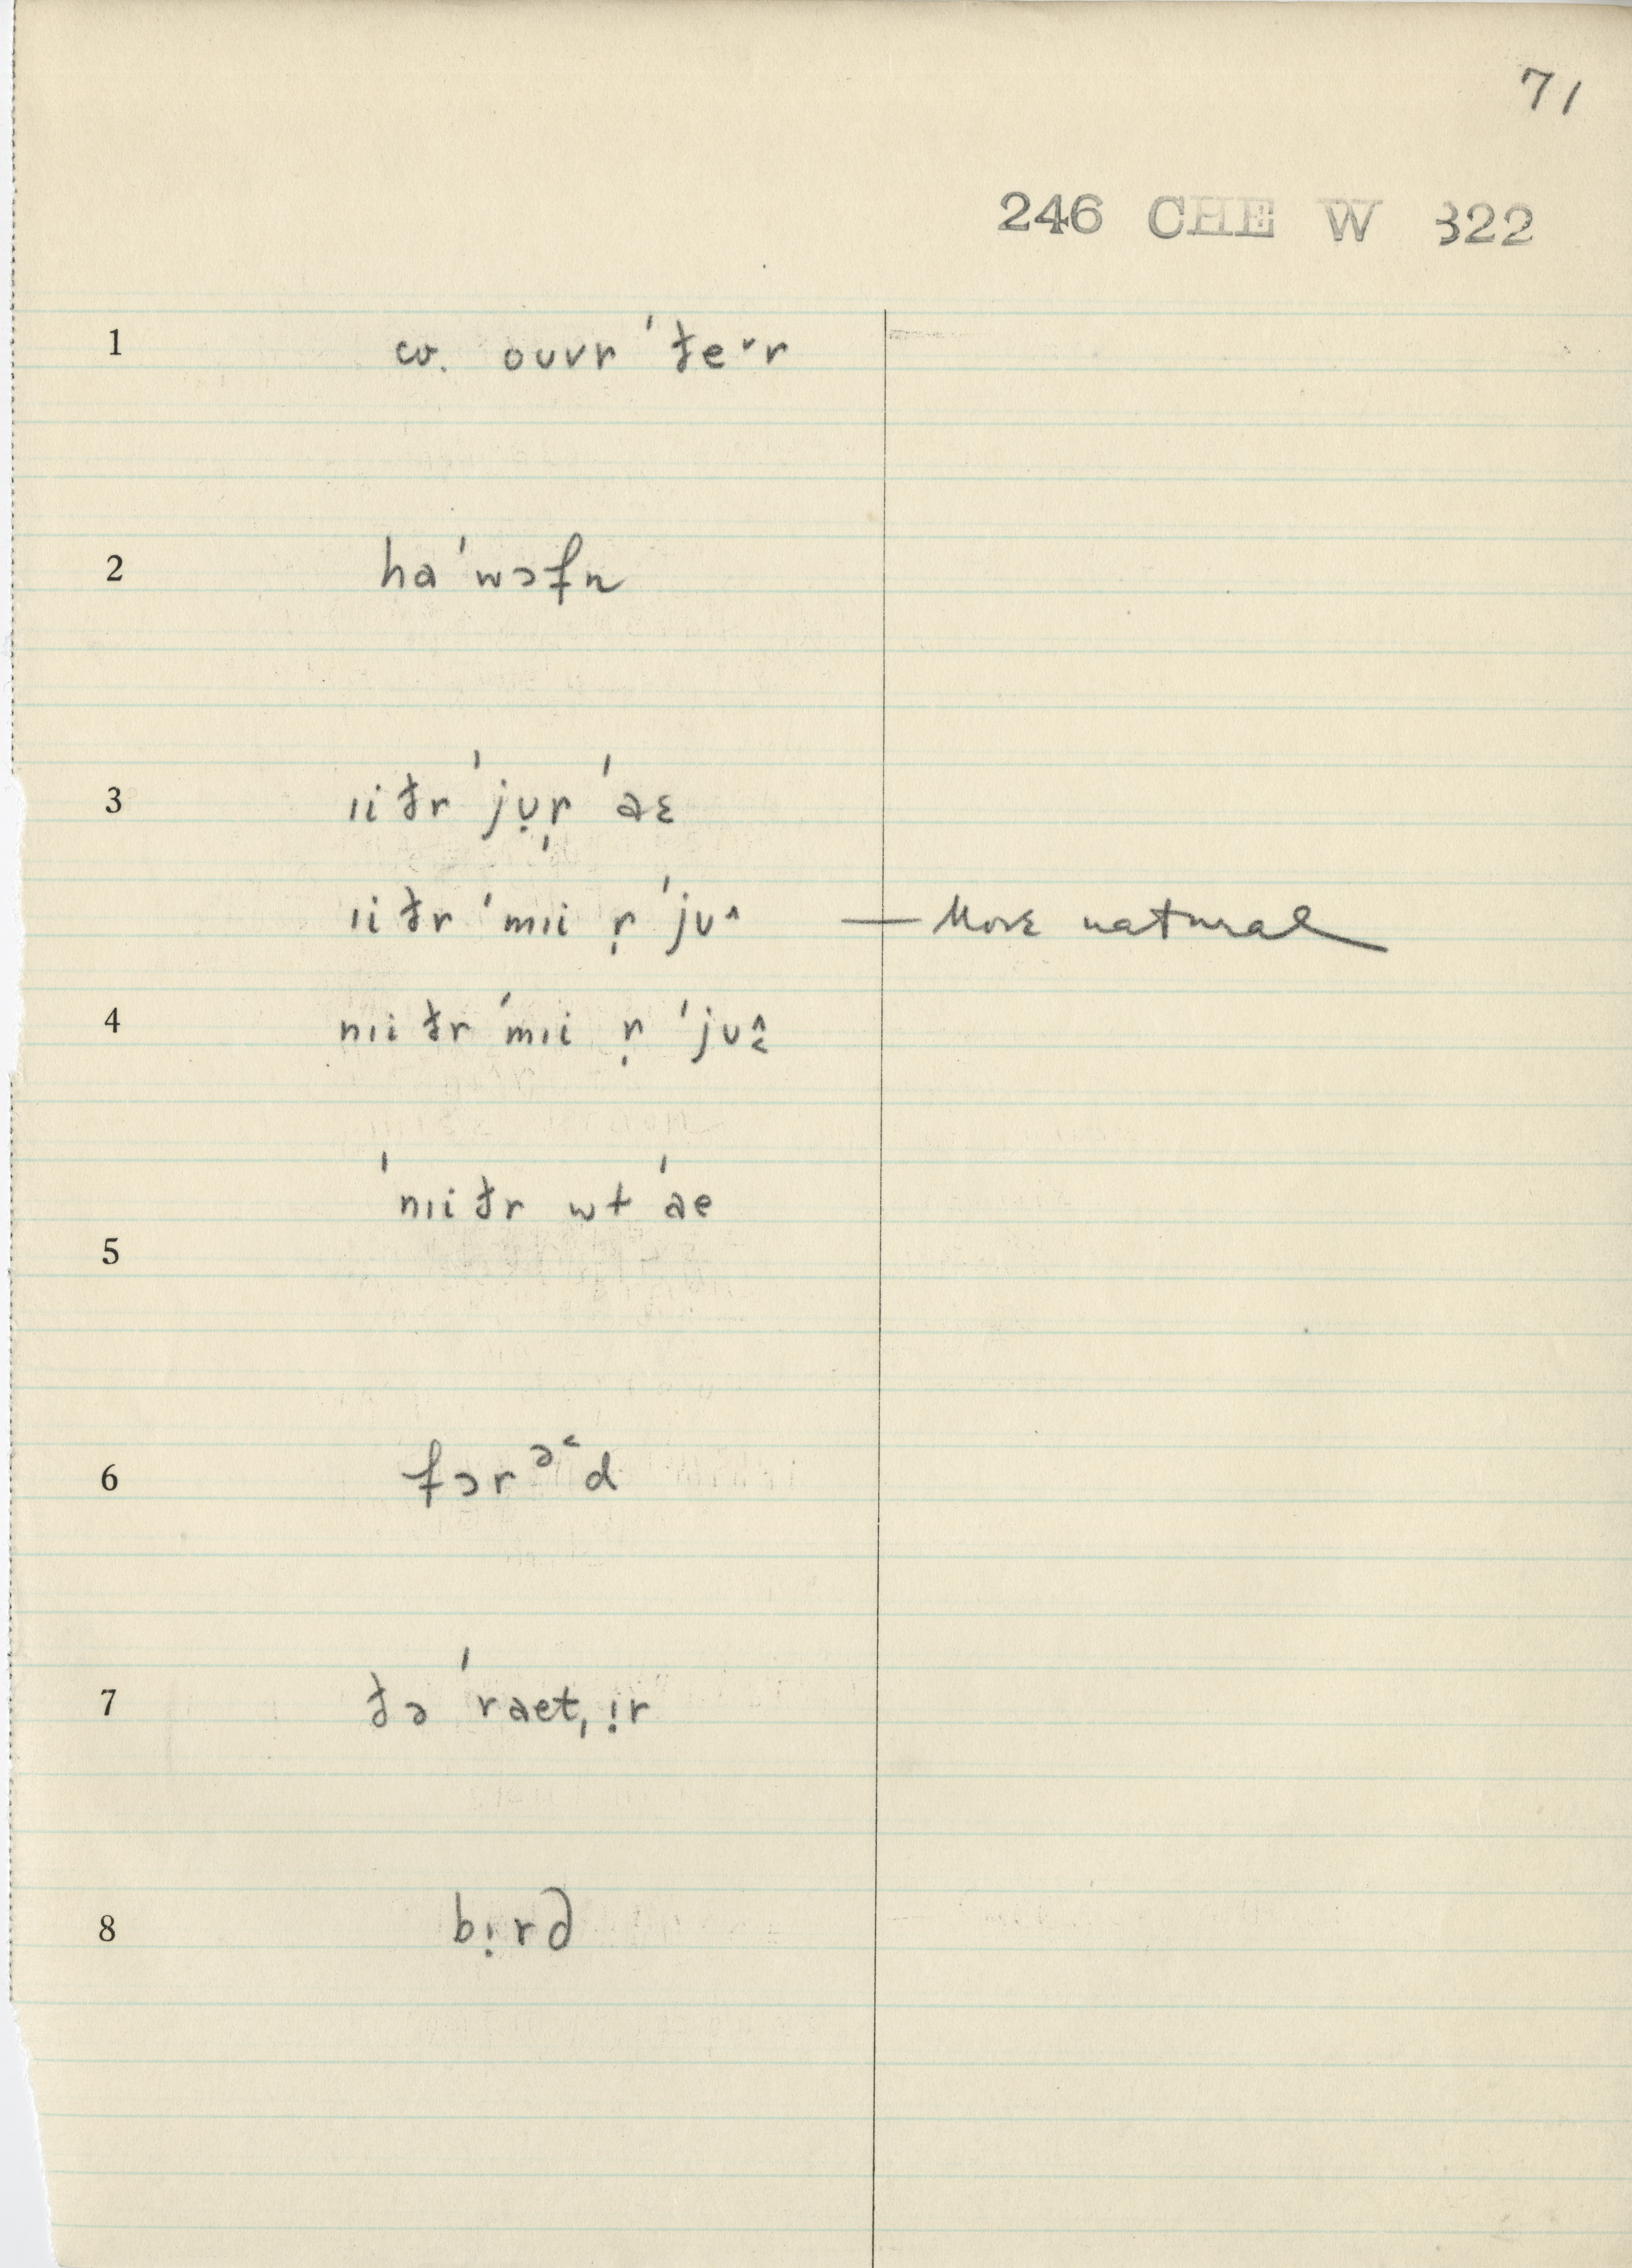 71
246 CHE W 322
1 cv. ouvr ˈðe˅r
2 haˈwɔfn
3 ıiðr ˈjṿṛ ˈaɛ
ıiðr ˈmıi ṛ ˈjv^ — More natural
4 nıiðr ˈmıi ṛ ˈjv^˂
ˈnıiðr wt ˈae
5
6 fɔrᵊ˂d
7 ðə ˈraet, ı̣r
8 bı̣rd